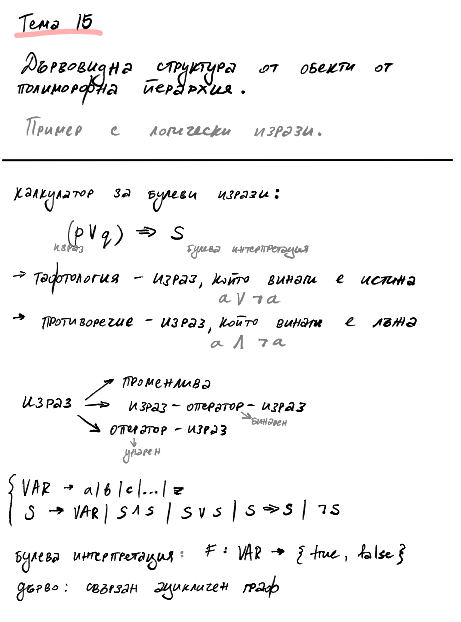 Тема 15
Дървовидна структура от обекти от
полиморфна йерархия.
Пример с логически изрази.
Калкулатор за булеви изрази:
(p∨q) ⇒ S
израз булева интерпретация
→ Тафтология – израз, който винаги е истина
a ∨ ¬a
→ противоречие – израз, който винаги е лъжа
a ∧ ¬a
променлива
израз → израз – оператор – израз
бинарен
оператор – израз
унарен
VAR → a|b|c|...|z
S → VAR | S∧S | S∨S | S⇒S | ¬S
булева интерпретация: F: VAR → {true, false}
дърво: свързан ацикличен граф